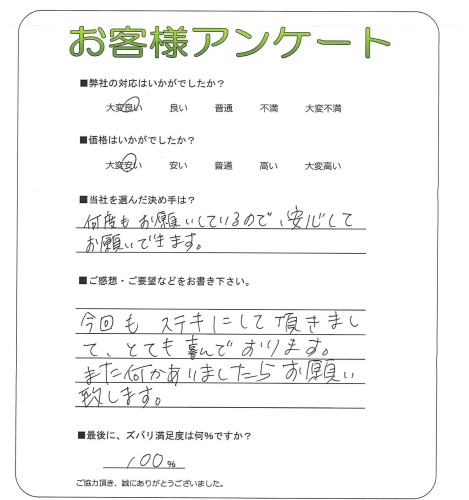 お客様アンケート
■弊社の対応はいかがでしたか？
大変良い 良い 普通 不満 大変不満
■価格はいかがでしたか？
大変安い 安い 普通 高い 大変高い
■当社を選んだ決め手は？
何度もお願いしているので、安心して
お願いできます。
■ご感想・ご要望などをお書き下さい。
今回も ステキにして頂きまし
て、とても喜んでおります。
また何かありましたらお願い
致します。
■最後に、ズバリ満足度は何%ですか？
100%
ご協力頂き、誠にありがとうございました。